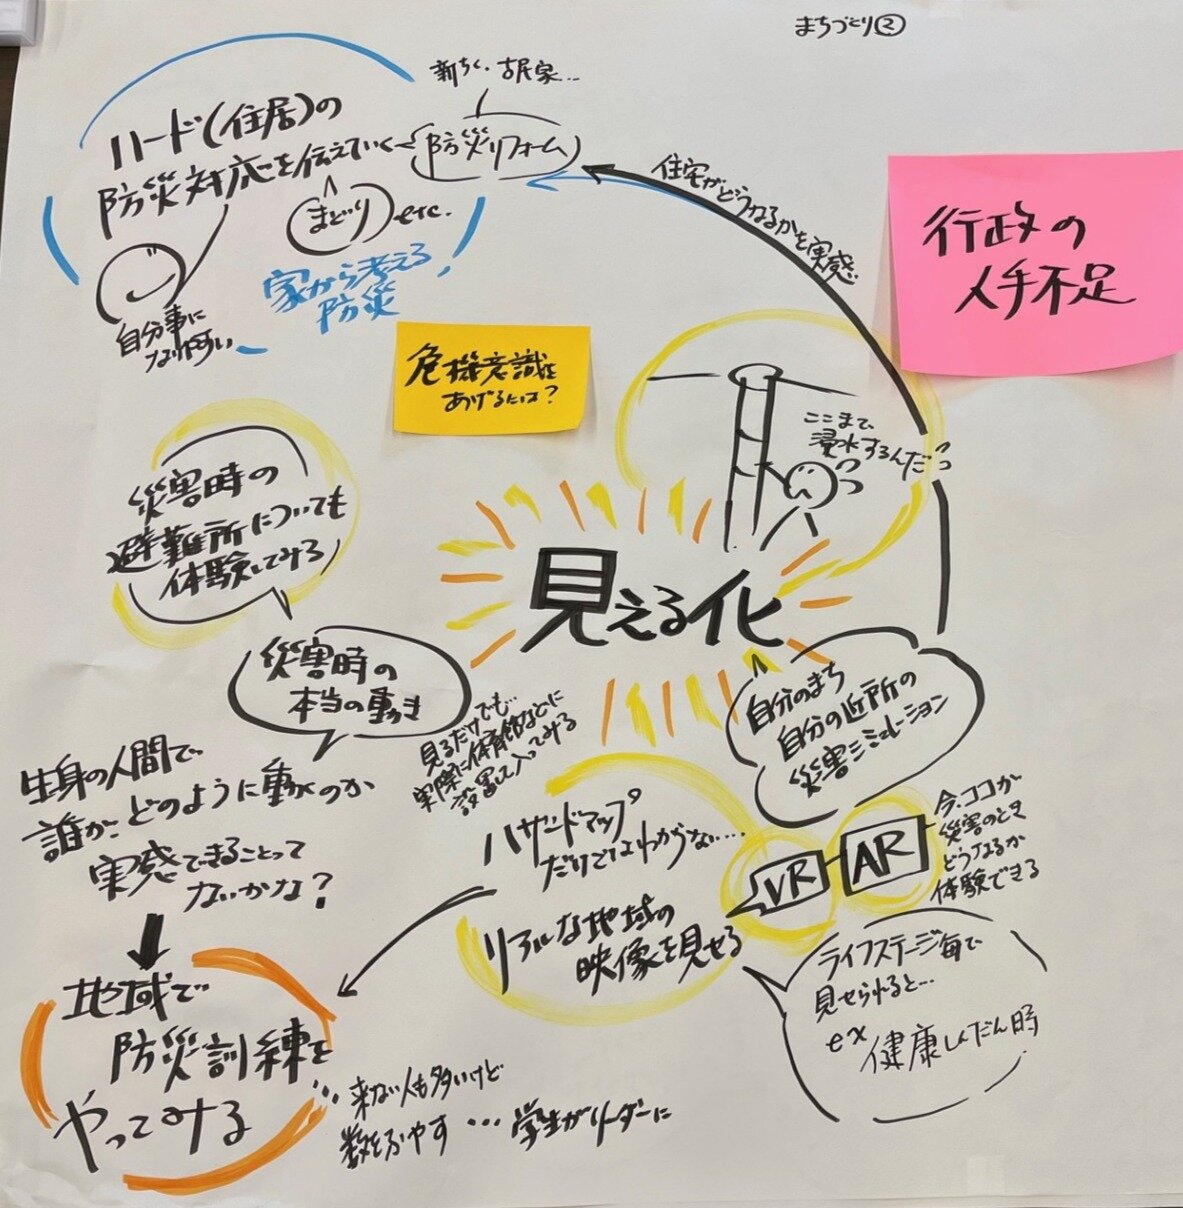 まちづくり②
新ちく、古民家…
ハード(住居)の
防災対応を伝えていく
防災リフォーム
まどり etc.
自分事に
なりやすい
家から考える
防災
住宅がどうなるかを実感
行政の
人手不足
危機意識を
あげるには?
ここまで
浸水するんだ
災害時の
避難所についても
体験してみる
見える化
災害時の
本当の動き
自分のまち
自分の近所の
災害シミュレーション
見るだけでも…
実際に体育館などに
設置して入ってみる
生身の人間で
誰が、どのように動くのか
実感できることって
ないかな?
ハザードマップ
だけではわからない…
リアルな地域の
映像を見せる
VR
AR
今、ココが
災害のとき
どうなるか
体験できる
ライフステージ毎で
見せられると…
ex 健康しんだん時
地域で
防災訓練を
やってみる
…来ない人も多いけど
数をふやす …学生がリーダーに